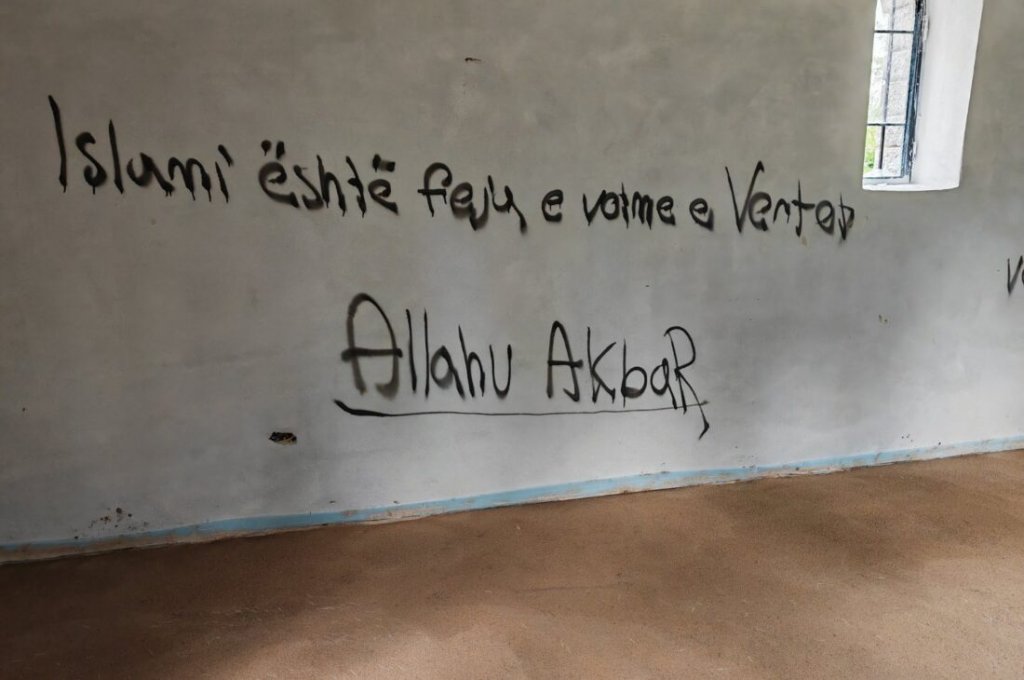 Islami është feja e votme e Vertet
Allahu AkbaR